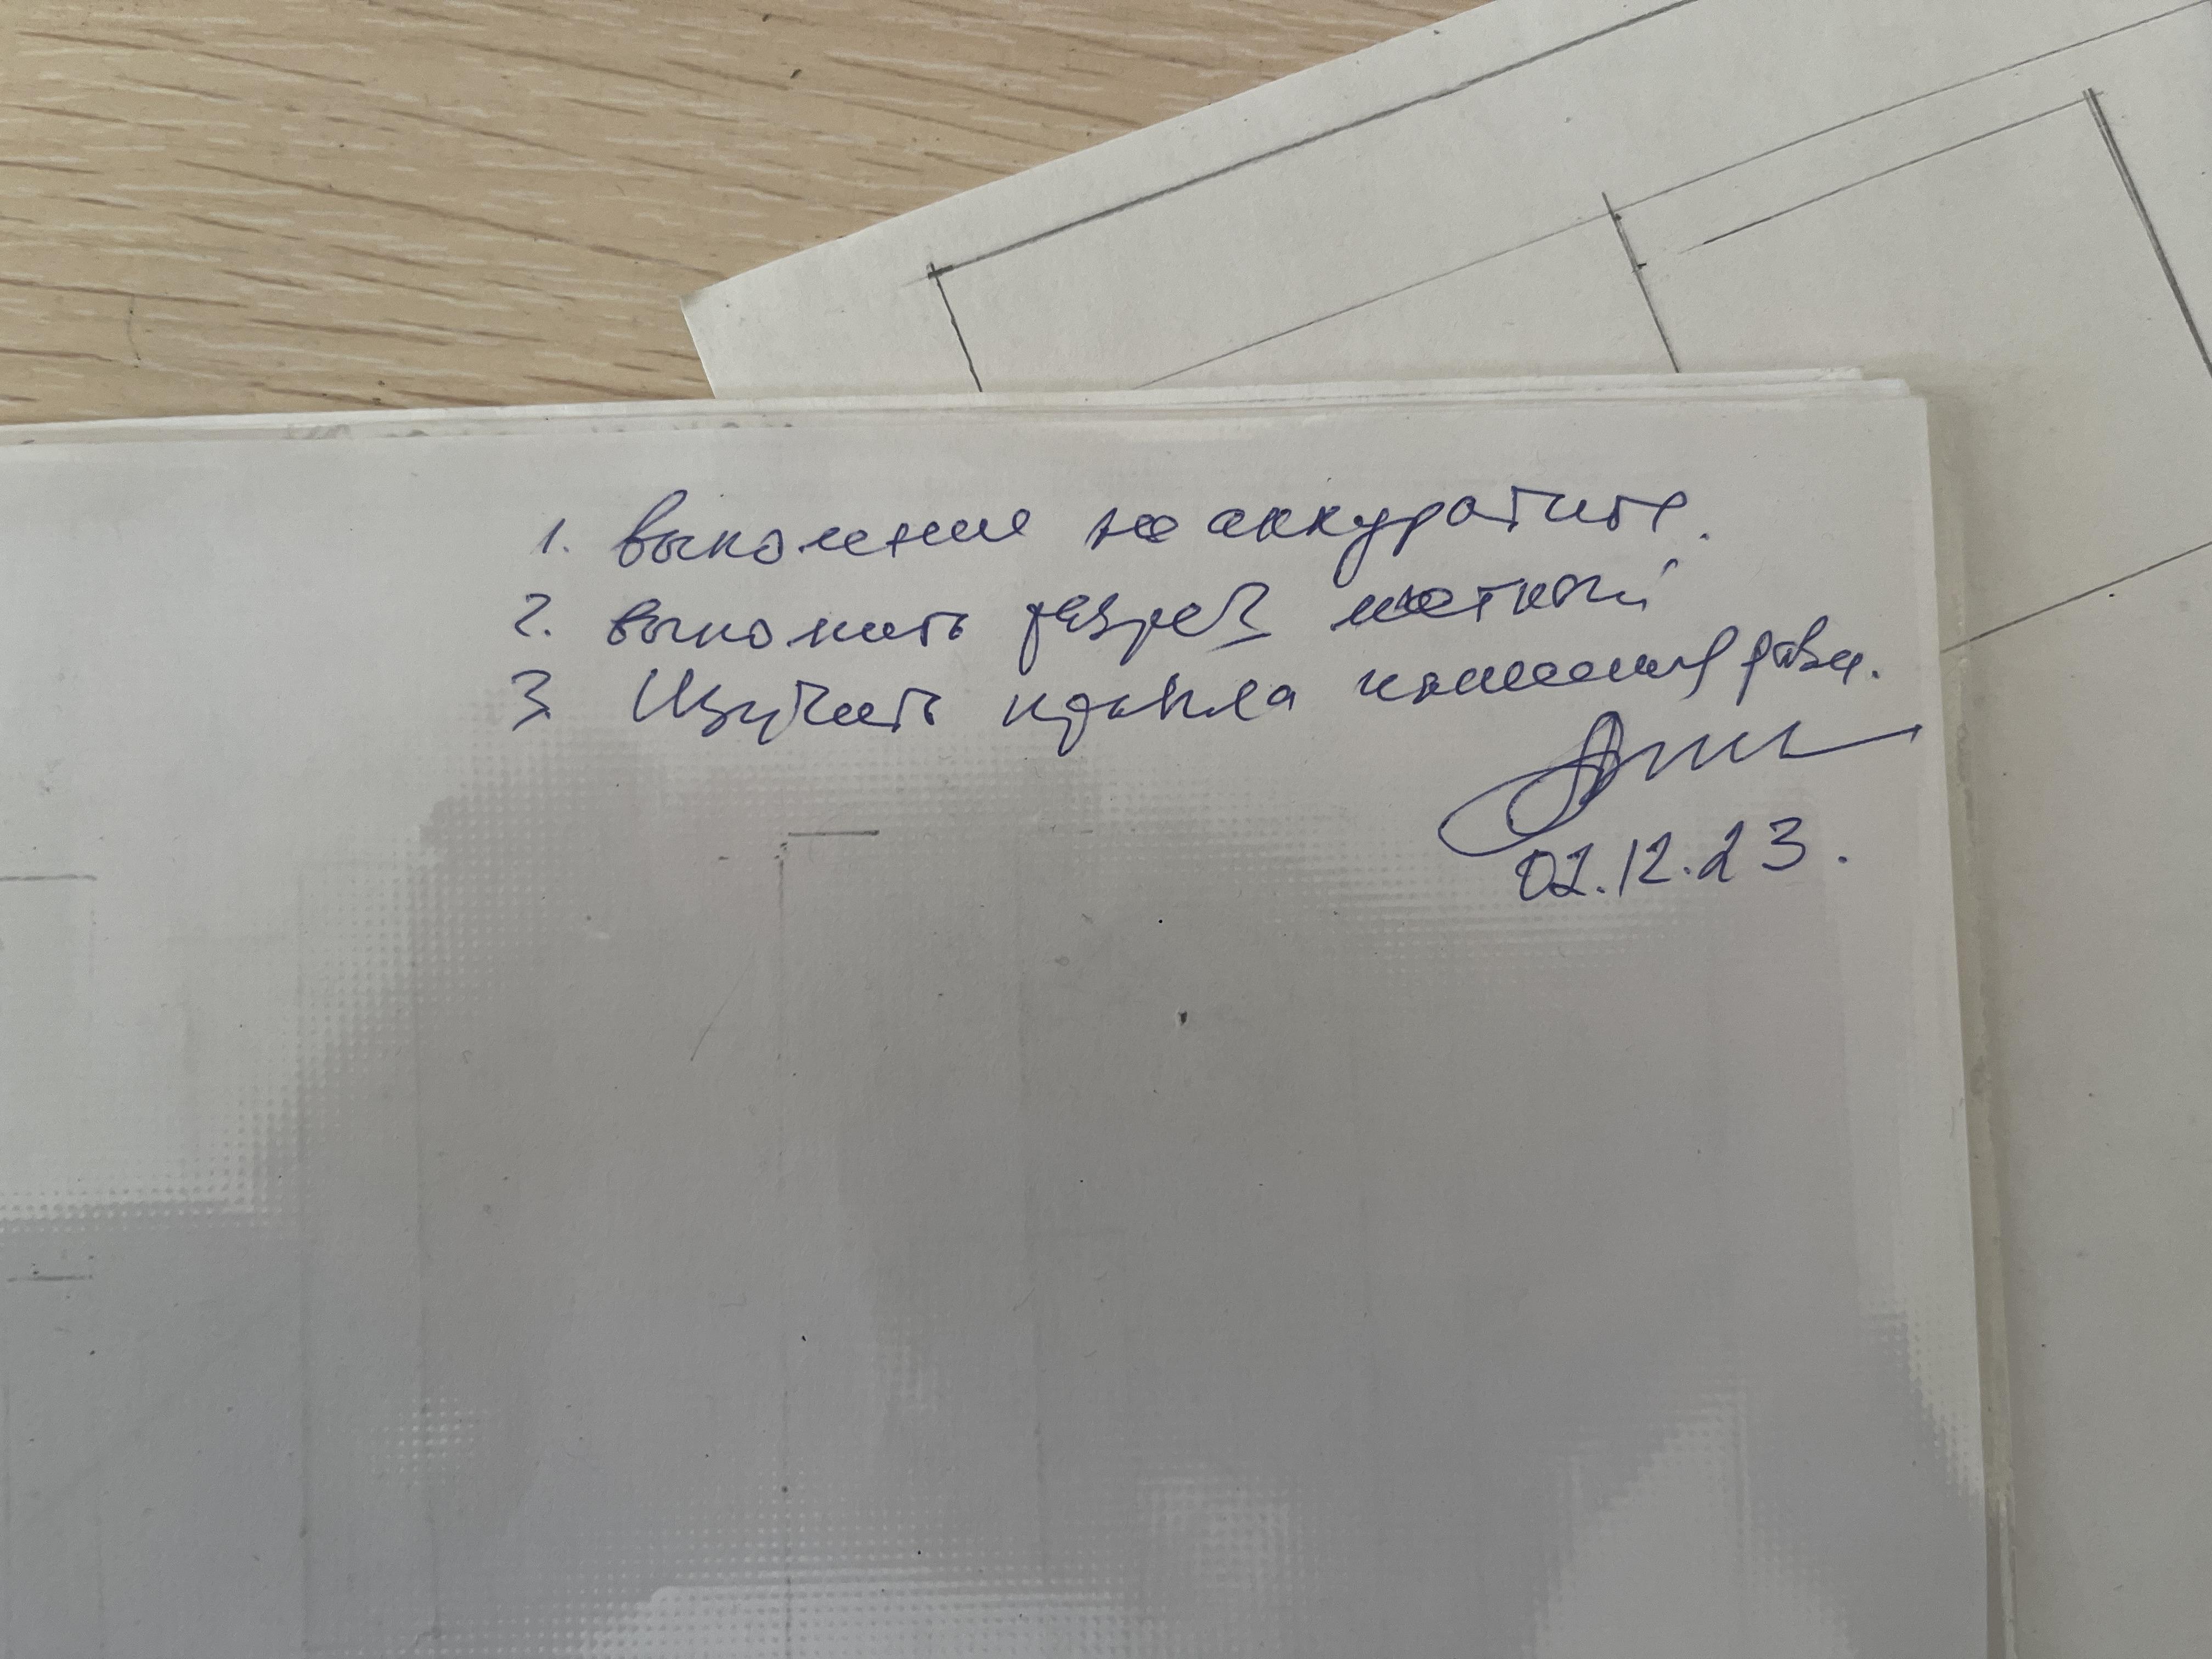 1. Выполнение не аккуратное.
2. Выполнить разрез местный
3 Изучить правила нанесения разм.
02.12.23.